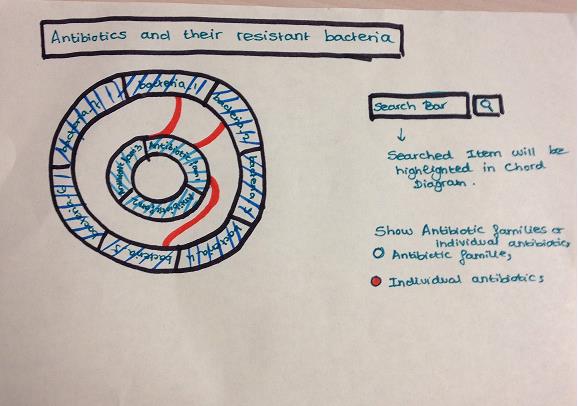 Antibiotics and their resistant bacteria
bacteria 1
bacteria 2
bacteria 4
bacteria 5
bacteria 6
Antibiotic fam 1
Antibiotic fam 2
Antibiotic fam 3
Search Bar
Searched Item will be
highlighted in Chord
Diagram.
Show Antibiotic families or
individual antibiotics
Antibiotic families
Individual antibiotics